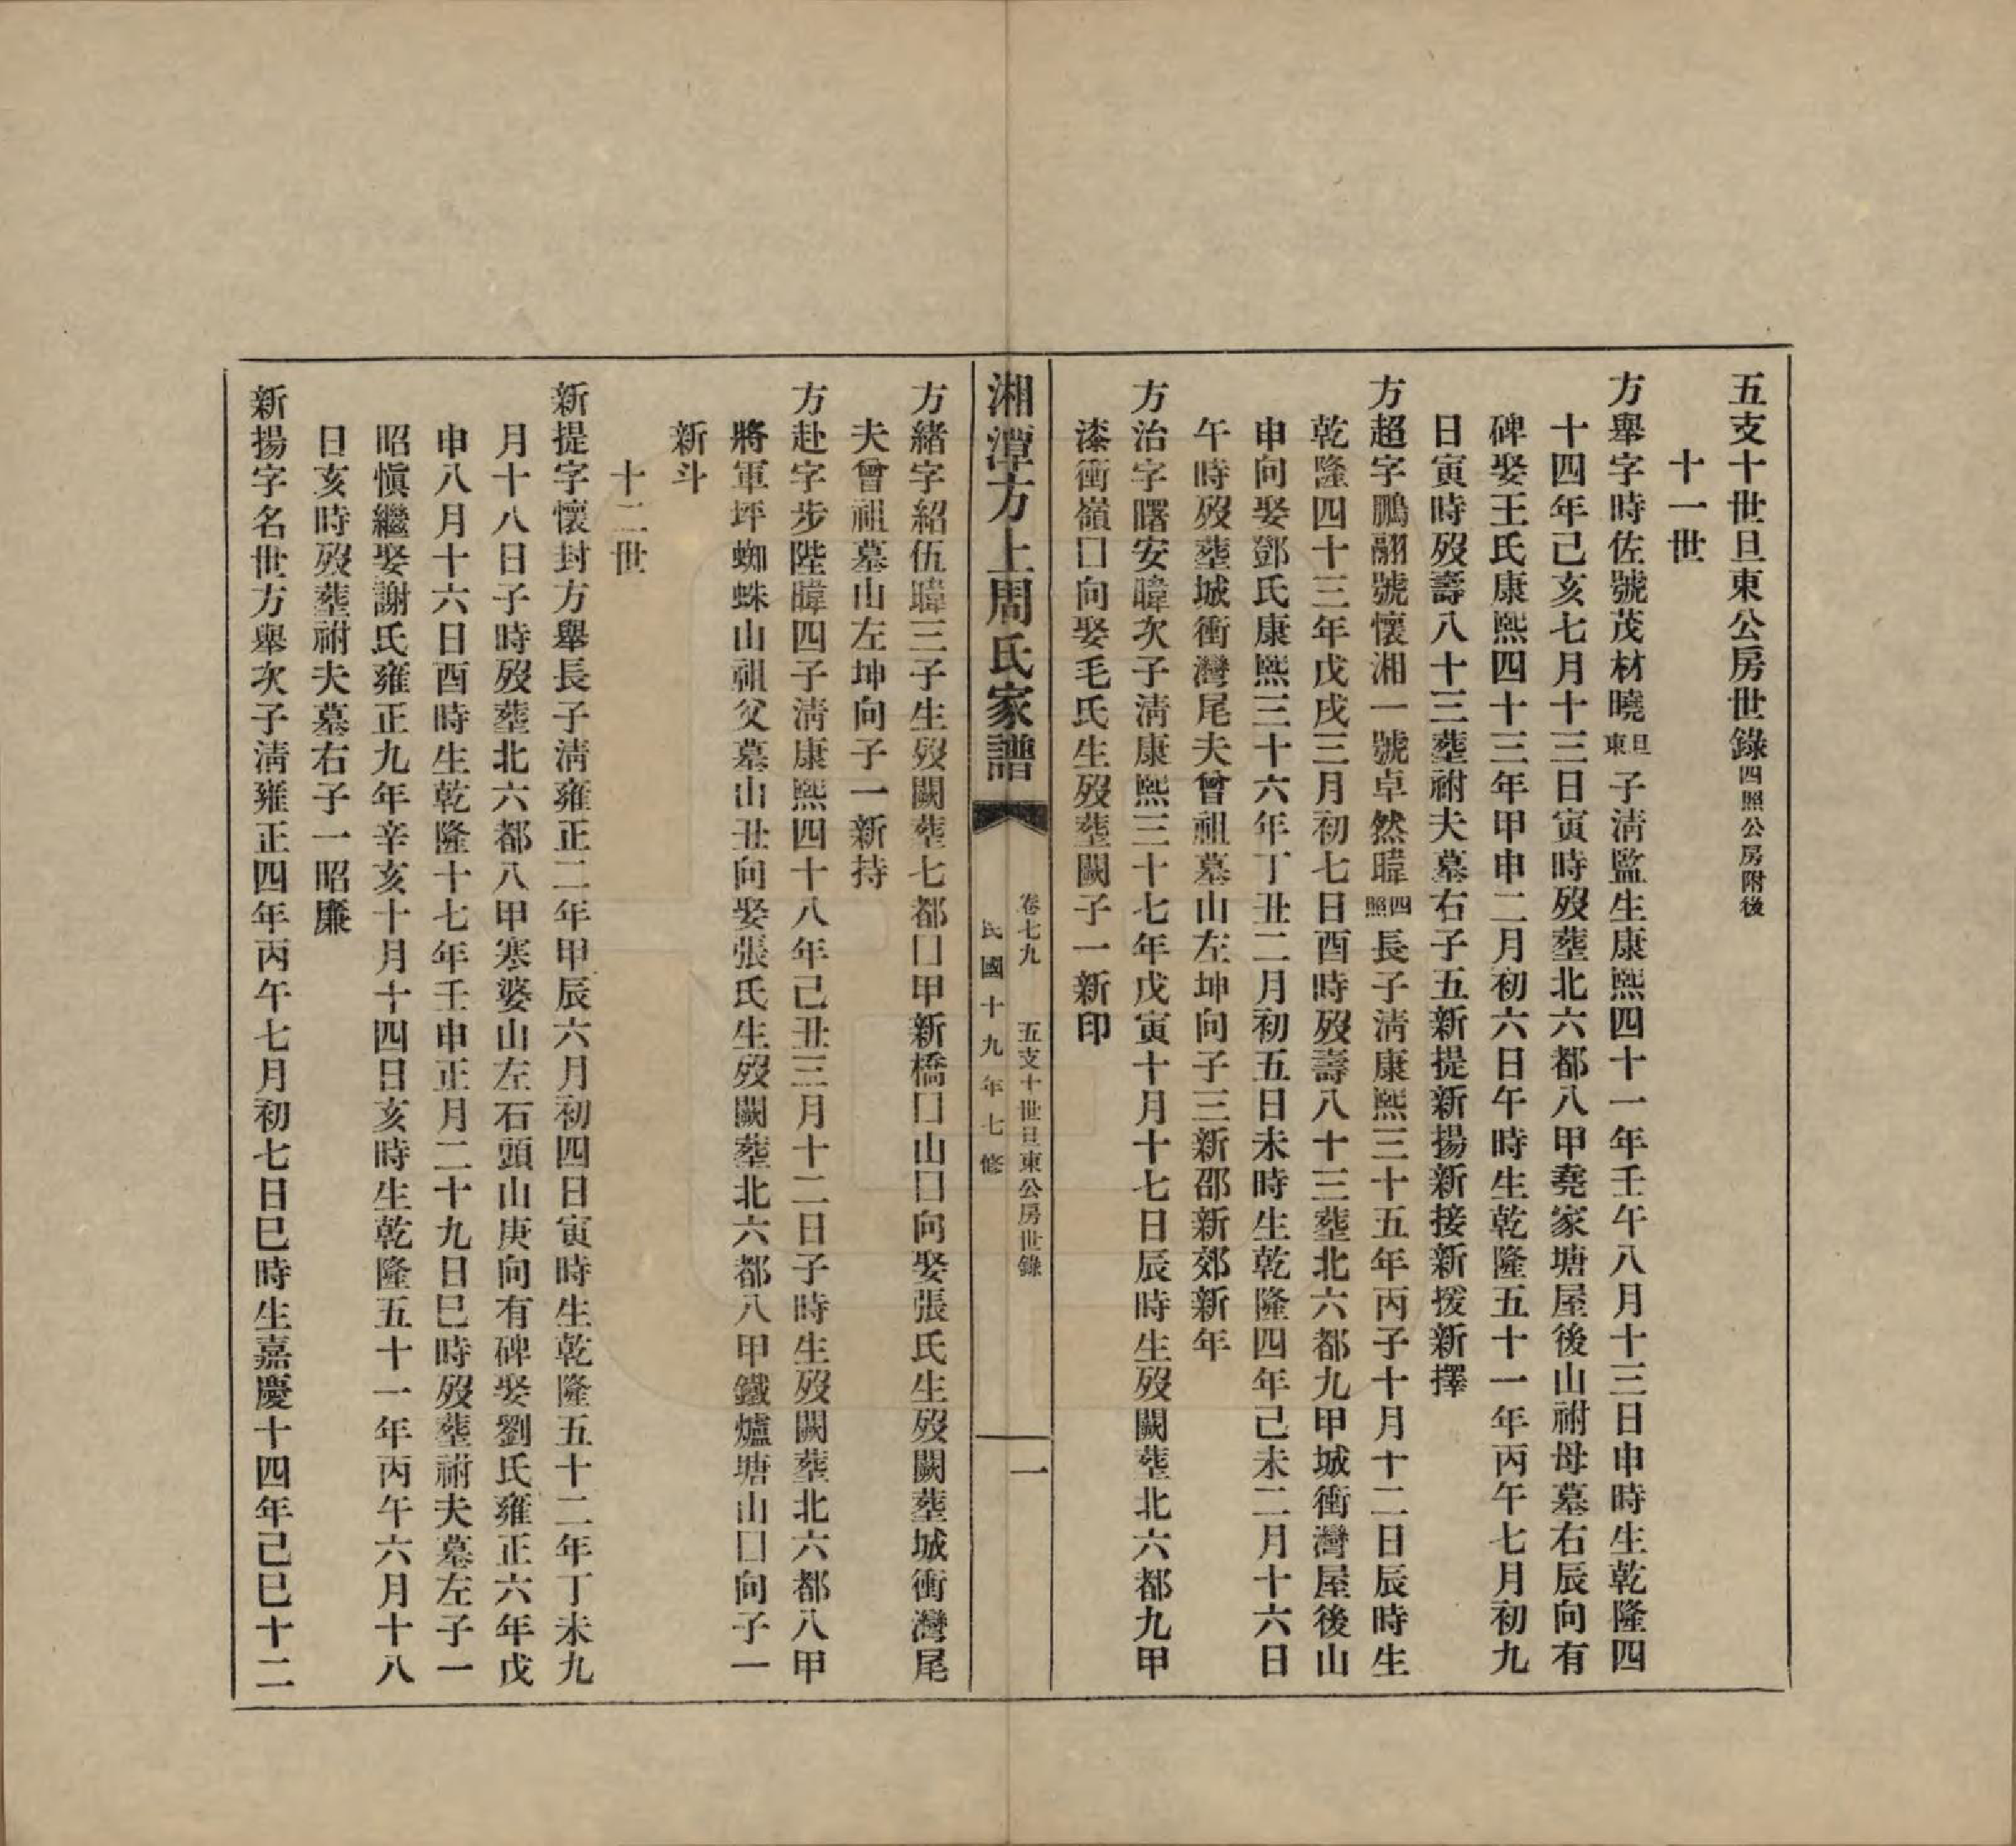 五支十世旦東公房世錄四照公房附後
十一世
方舉字時佐號茂材曉旦東子淸監生康熙四十一年壬午八月十三日申時生乾隆四
十四年己亥七月十三日寅時歿葬北六都八甲堯家塘屋後山祔母墓右辰向有
碑娶王氏康熙四十三年甲申二月初六日午時生乾隆五十一年丙午七月初九
日寅時歿壽八十三葬祔夫墓右子五新提新揚新接新援新擇
方超字鵬翮號懷湘一號卓然暐四照長子淸康熙三十五年丙子十月十二日辰時生
乾隆四十三年戊戌三月初七日酉時歿壽八十三葬北六都九甲城衝灣屋後山
申向娶鄧氏康熙三十六年丁丑二月初五日未時生乾隆四年己未二月十六日
午時歿葬城衝灣尾夫曾祖墓山左坤向子三新邵新郊新年
方治字曙安暐次子淸康熙三十七年戊寅十月十七日辰時生歿闕葬北六都九甲
漆衝嶺囗向娶毛氏生歿葬闕子一新印
湘潭方上周氏家譜
卷七九 五支十世旦東公房世錄
民國十九年七修
一
方緒字紹伍暐三子生歿闕葬七都囗甲新橋囗山囗向娶張氏生歿闕葬城衝灣尾
夫曾祖墓山左坤向子一新持
方赴字步陛暐四子淸康熙四十八年己丑三月十二日子時生歿闕葬北六都八甲
將軍坪蜘蛛山祖父墓山丑向娶張氏生歿闕葬北六都八甲鐵爐塘山囗向子一
新斗
十二世
新提字懷封方舉長子淸雍正二年甲辰六月初四日寅時生乾隆五十二年丁未九
月十八日子時歿葬北六都八甲寒婆山左石頭山庚向有碑娶劉氏雍正六年戊
申八月十六日酉時生乾隆十七年壬申正月二十九日巳時歿葬祔夫墓左子一
昭愼繼娶謝氏雍正九年辛亥十月十四日亥時生乾隆五十一年丙午六月十八
日亥時歿葬祔夫墓右子一昭廉
新揚字名世方舉次子淸雍正四年丙午七月初七日巳時生嘉慶十四年己巳十二